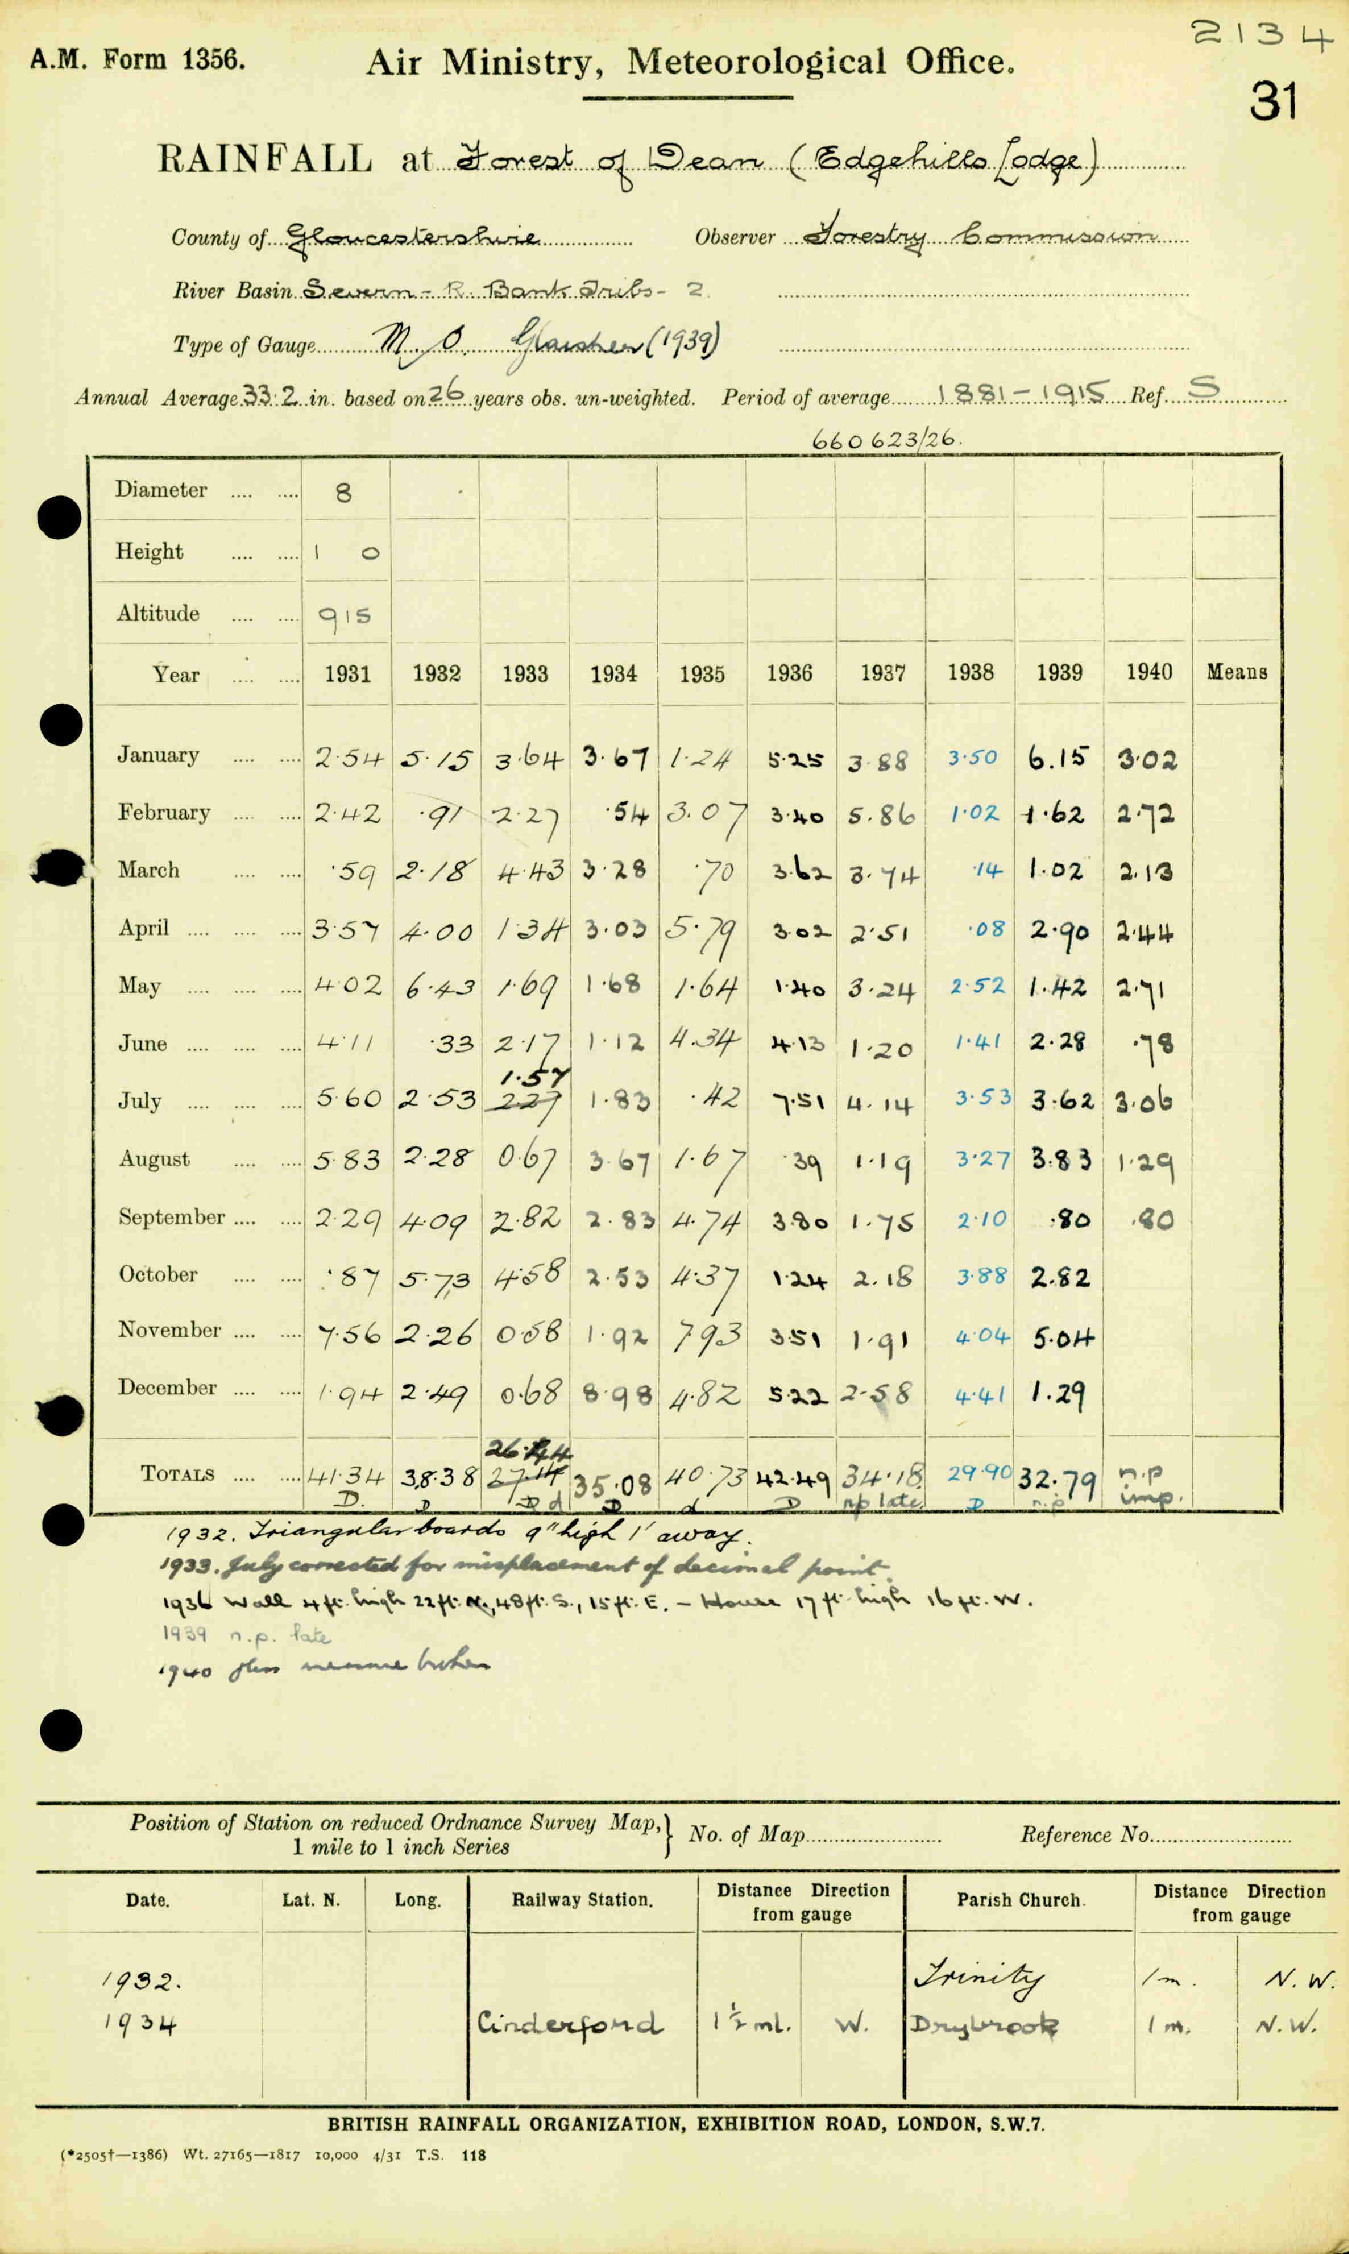 2134
A.M. Form 1356. Air Ministry, Meteorological Office.
31
RAINFALL at Forest of Dean (Edgehills Lodge)
County of Gloucestershire Observer Forestry Commission
River Basin Severn - R. Bank Tribs - 2.
Type of Gauge M O. Glaisher (1939)
Annual Average 33.2 in. based on 26 years obs. un-weighted. Period of average 1881-1915 Ref. S
660623/26.
Diameter .... .... 8
Height .... .... 1 0
Altitude .... .... 915
Year .... .... 1931 1932 1933 1934 1935 1936 1937 1938 1939 1940 Means
January .... .... 2.54 5.15 3.64 3.67 1.24 5.25 3.88 3.50 6.15 3.02
February .... .... 2.42 .91 2.27 .54 3.07 3.40 5.86 1.02 1.62 2.72
March .... .... .59 2.18 4.43 3.28 .70 3.62 3.74 .14 1.02 2.13
April .... .... .... 3.57 4.00 1.34 3.03 5.79 3.02 2.51 .08 2.90 2.44
May .... .... .... 4.02 6.43 1.69 1.68 1.64 1.40 3.24 2.52 1.42 2.71
June .... .... .... 4.11 .33 2.17 1.12 4.34 4.13 1.20 1.41 2.28 .78
1.57
July .... .... .... 5.60 2.53 2.27 1.83 .42 7.51 4.14 3.53 3.62 3.06
August .... .... 5.83 2.28 0.67 3.67 1.67 .39 1.19 3.27 3.83 1.29
September .... .... 2.29 4.09 2.82 2.83 4.74 3.80 1.75 2.10 .80 .80
October .... .... .87 5.73 4.58 2.53 4.37 1.24 2.18 3.88 2.82
November .... .... 7.56 2.26 0.58 1.92 7.93 3.51 1.91 4.04 5.04
December .... .... 1.94 2.49 0.68 8.98 4.82 5.22 2.58 4.41 1.29
26.44
TOTALS .... .... 41.34 38.38 27.14 35.08 40.73 42.49 34.18 29.90 32.79 n.p
D. D D d D d D np late D n.p imp.
1932. Triangular boards 9" high 1' away.
1933. July corrected for misplacement of decimal point.
1936 Wall 4 ft. high 22 ft. N., 48 ft. S., 15 ft. E. - House 17 ft. high 16 ft. W.
1939 n.p. late
1940 glass measure broken
Position of Station on reduced Ordnance Survey Map, } No. of Map Reference No.
1 mile to 1 inch Series
Date. Lat. N. Long. Railway Station. Distance Direction from gauge Parish Church. Distance Direction from gauge
1932. Trinity 1m. N.W.
1934 Cinderford 1½ ml. W. Drybrook 1m. N.W.
BRITISH RAINFALL ORGANIZATION, EXHIBITION ROAD, LONDON, S.W.7.
(*2505†—1386) Wt. 27165—1817 10,000 4/31 T.S. 118